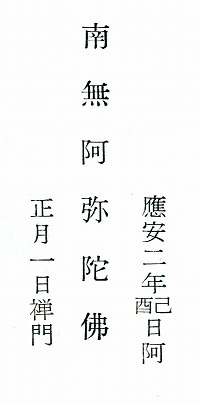 應安二年己酉日阿
南無阿弥陀佛
正月一日禅門